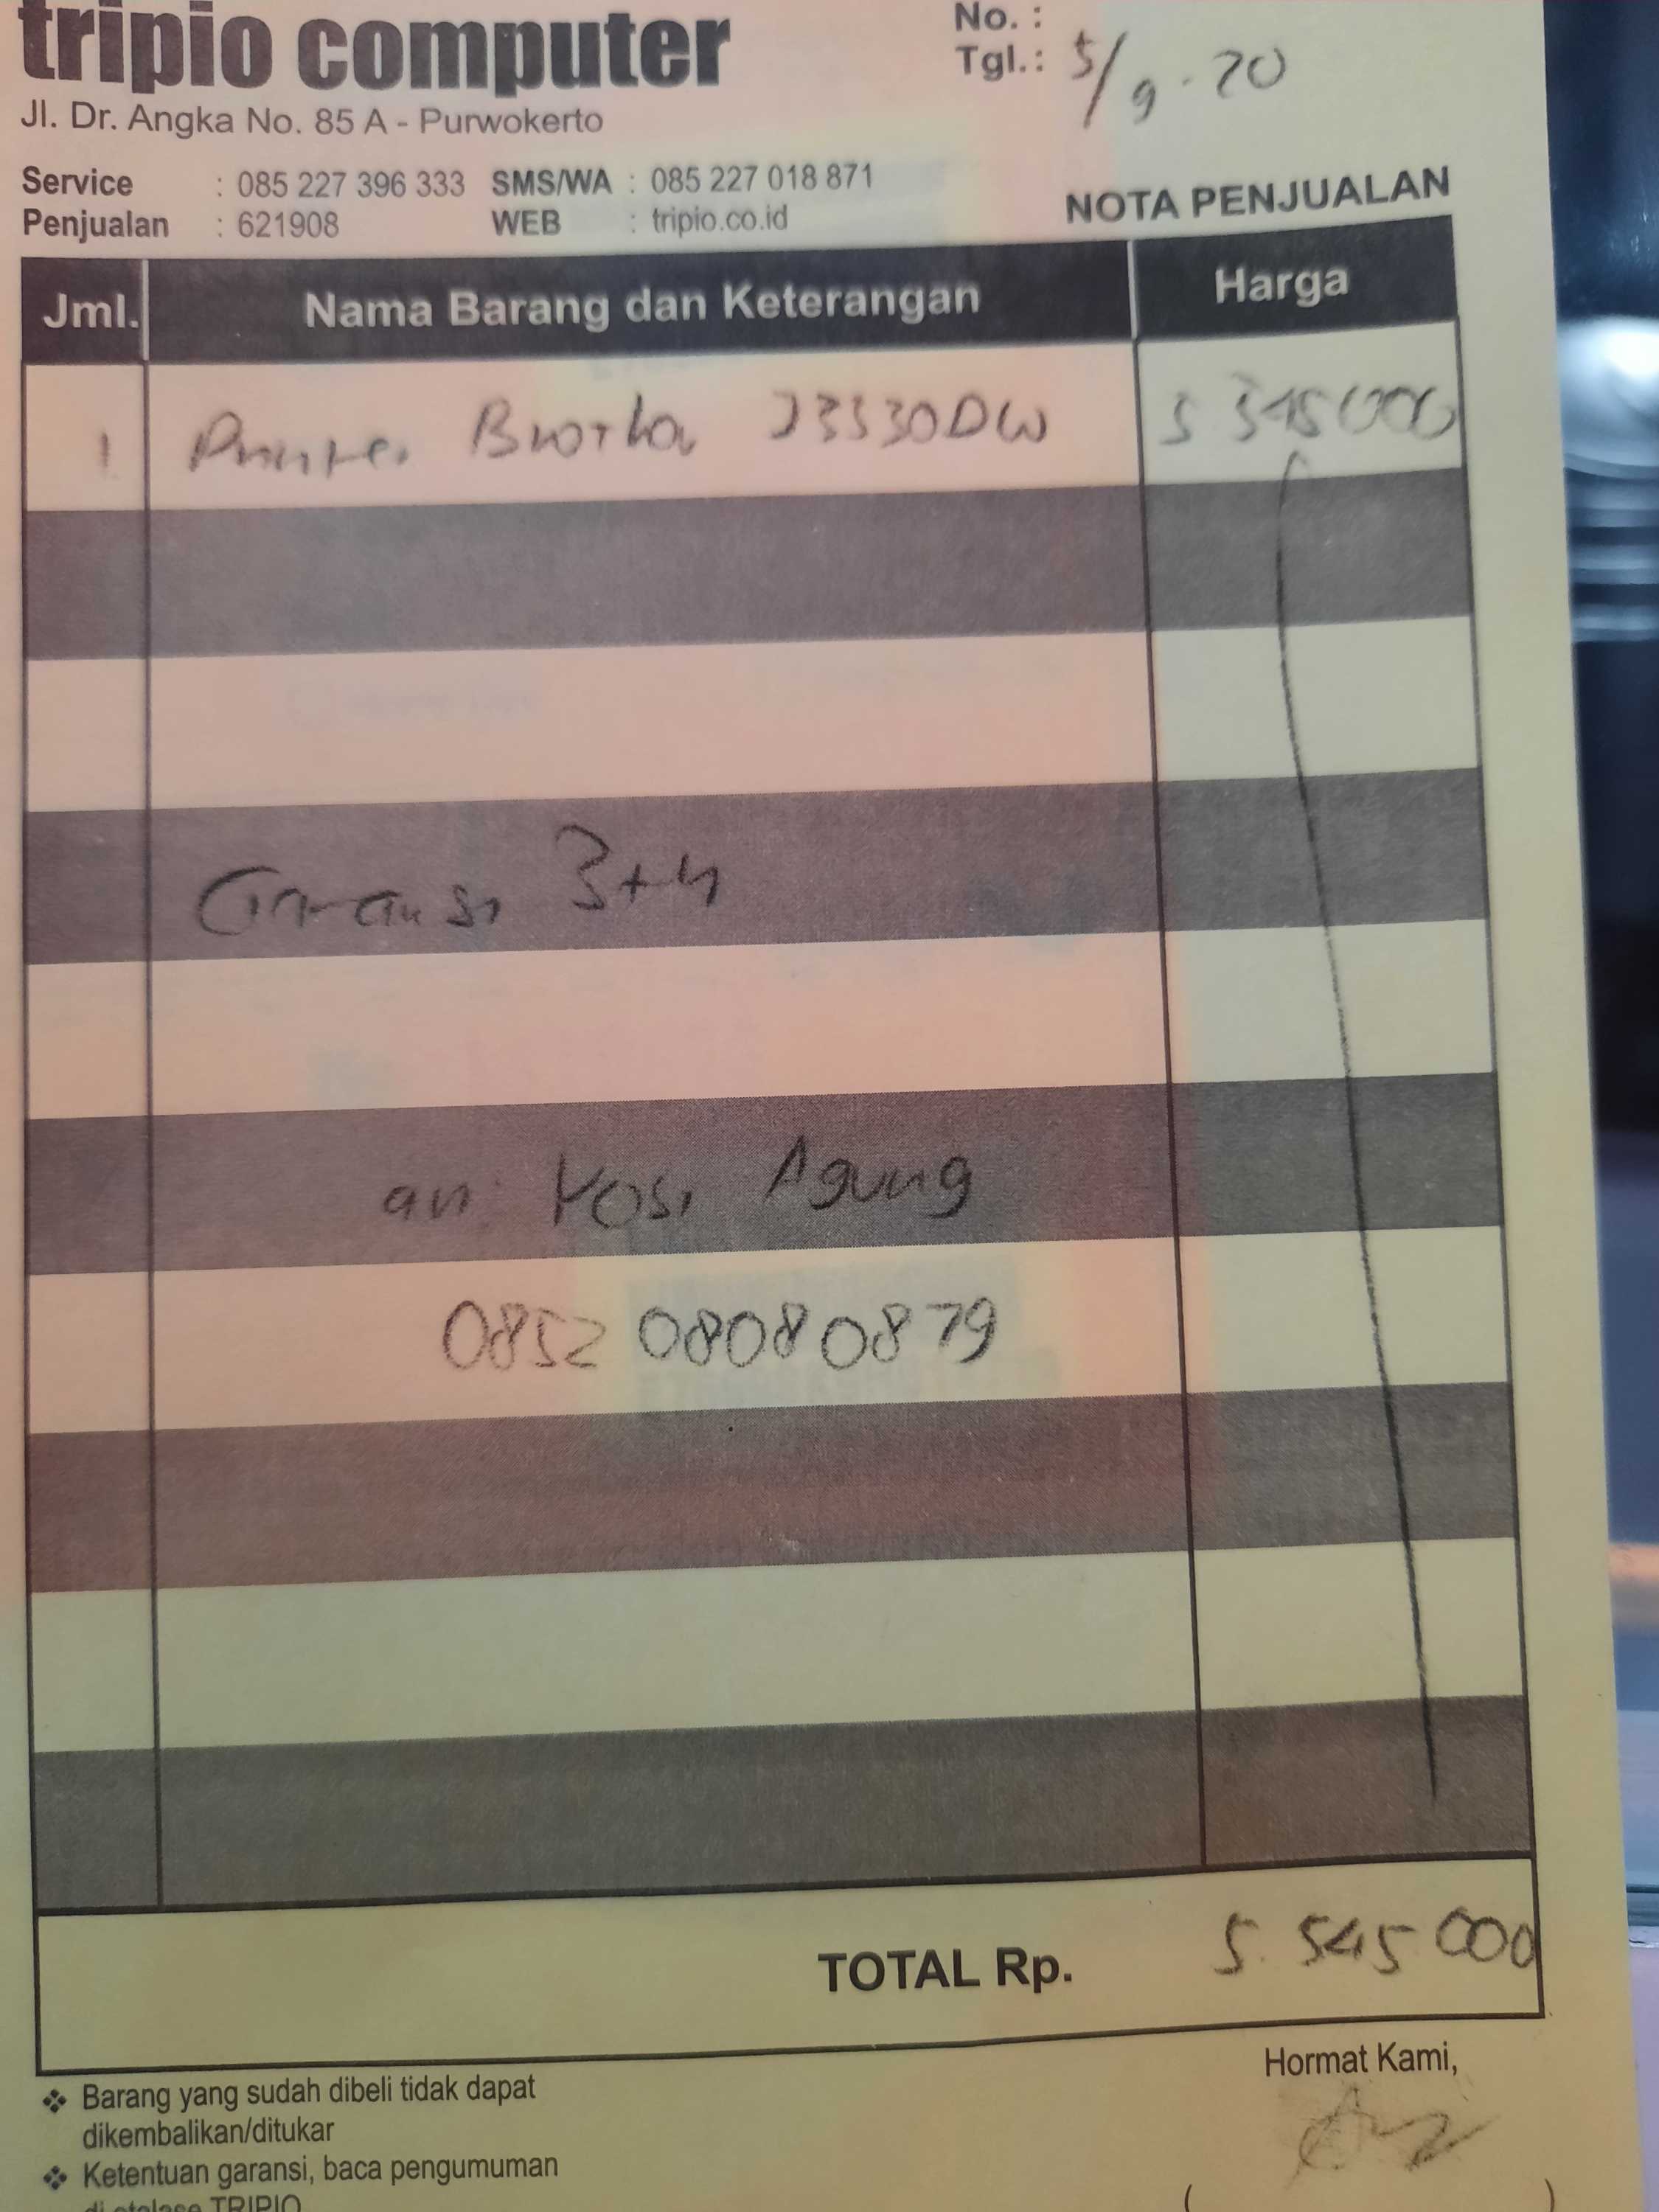 tripio computer
Jl. Dr. Angka No. 85 A - Purwokerto
No. :
Tgl. : 5/9 . 20
Service : 085 227 396 333 SMS/WA : 085 227 018 871
Penjualan : 621908 WEB : tripio.co.id
NOTA PENJUALAN
Jml. Nama Barang dan Keterangan Harga
1 Printer Brother J3530DW
Garansi 3th
an Yosi Agung
0852 0808 0879
TOTAL Rp. 5.545 000
Hormat Kami,
❖ Barang yang sudah dibeli tidak dapat
dikembalikan/ditukar
❖ Ketentuan garansi, baca pengumuman
di etalase TRIPIO